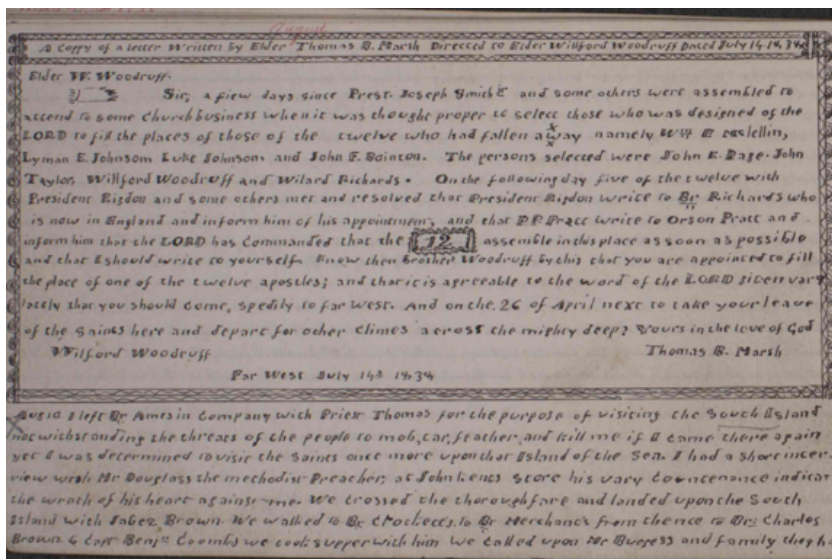 August
A Coppy of a letter Written by Elder Thomas B. Marsh Directed to Elder Willford Woodruff Dated July 14. 1838
Elder W. Woodruff.
Sir, a fiew days since Prest. Joseph Smith and some others were assembled to
attend to some Church business when it was thought proper to select those who was designed of the
LORD to fill the places of those of the twelve who had fallen away namely Wm E McLellin,
Lyman E. Johnson Luke Johnson, and John F. Bointon. The persons selected were John E. Page. John
Taylor, Willford Woodruff and Wilard Richards. On the following day five of the twelve with
President Rigdon and some others met and resolved that President Rigdon write to Br Richards who
is now in England and inform him of his appointment, and that P.P. Pratt write to Orson Pratt and
inform him that the LORD has Commanded that the 12 assemble in this place as soon as possible
and that I should write to yourself. Know then brother Woodruff by this that you are appointed to fill
the place of one of the twelve apostles; and that it is agreeable to the word of the LORD given vary
lately that you should come, spedily to far West. And on the 26 of April next to take your leave
of the Saints here and depart for other Climes across the mighty deep? Yours in the love of God
Wilford Woodruff Thomas B. Marsh
Far West July 14th 1838
I left Br Ames in Company with Priest Thomas for the purpose of visiting the South Island
notwithstanding the threats of the people to mob, tar, feather, and kill me if I came there again
yet I was determined to visit the Saints once more upon that Island of the Sea. I had a short inter
view with Mr Douglass the methodist Preacher, at John Kents Store his vary Countenance indicat
the wrath of his heart against me. We crossed the thoroughfare and landed upon the South
Island with Jabez Brown. We walked to Br Crocketts, to Br Merchants from thence to Brs Charles
Brown & Capt Benjn Coombs we took supper with him We called upon Mr Burgess and family they h